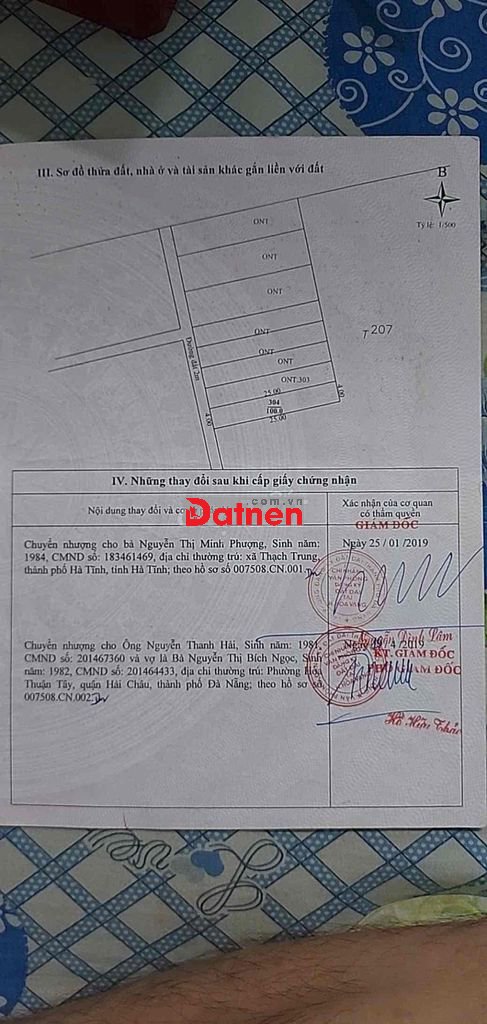 III. Sơ đồ thửa đất, nhà ở và tài sản khác gắn liền với đất
B
Tỷ lệ: 1/500
ONT
ONT
ONT
T 207
ONT
ONT
ONT
Đường đất 2m
ONT.303
25.00
4.00
304
100.0
4.00
25.00
IV. Những thay đổi sau khi cấp giấy chứng nhận
Nội dung thay đổi và cơ
Xác nhận của cơ quan
có thẩm quyền
.com.vn
Datnen
GIÁM ĐỐC
Chuyển nhượng cho bà Nguyễn Thị Minh Phượng, Sinh năm:
1984, CMND số: 183461469, địa chỉ thường trú: xã Thạch Trung,
thành phố Hà Tĩnh, tỉnh Hà Tĩnh; theo hồ sơ số 007508.CN.001.
Ngày 25 / 01 /2019
CHI NHÁNH
VĂN PHÒNG
ĐĂNG KÝ
ĐẤT ĐAI
TẠI
HÒA VANG
Chuyển nhượng cho Ông Nguyễn Thanh Hải, Sinh năm: 1981,
CMND số: 201467360 và vợ là Bà Nguyễn Thị Bích Ngọc, Sinh
năm: 1982, CMND số: 201464433, địa chỉ thường trú: Phường Hòa
Thuận Tây, quận Hải Châu, thành phố Đà Nẵng; theo hồ sơ số
007508.CN.002
/ 4 /2019
KT. GIÁM ĐỐC